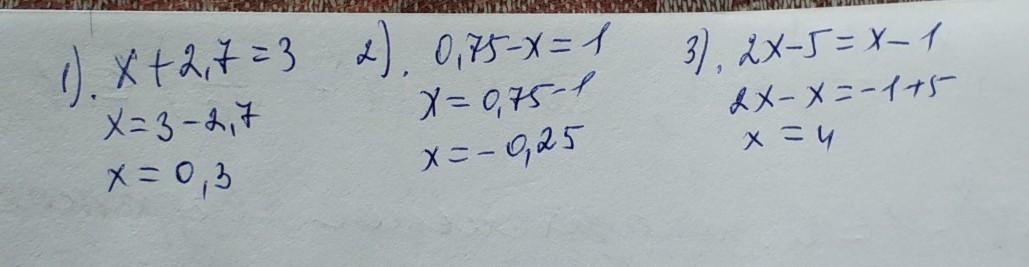 1). x+2,7=3
x=3-2,7
x=0,3
2). 0,75-x=1
x=0,75-1
x=-0,25
3). 2x-5=x-1
2x-x=-1+5
x=4